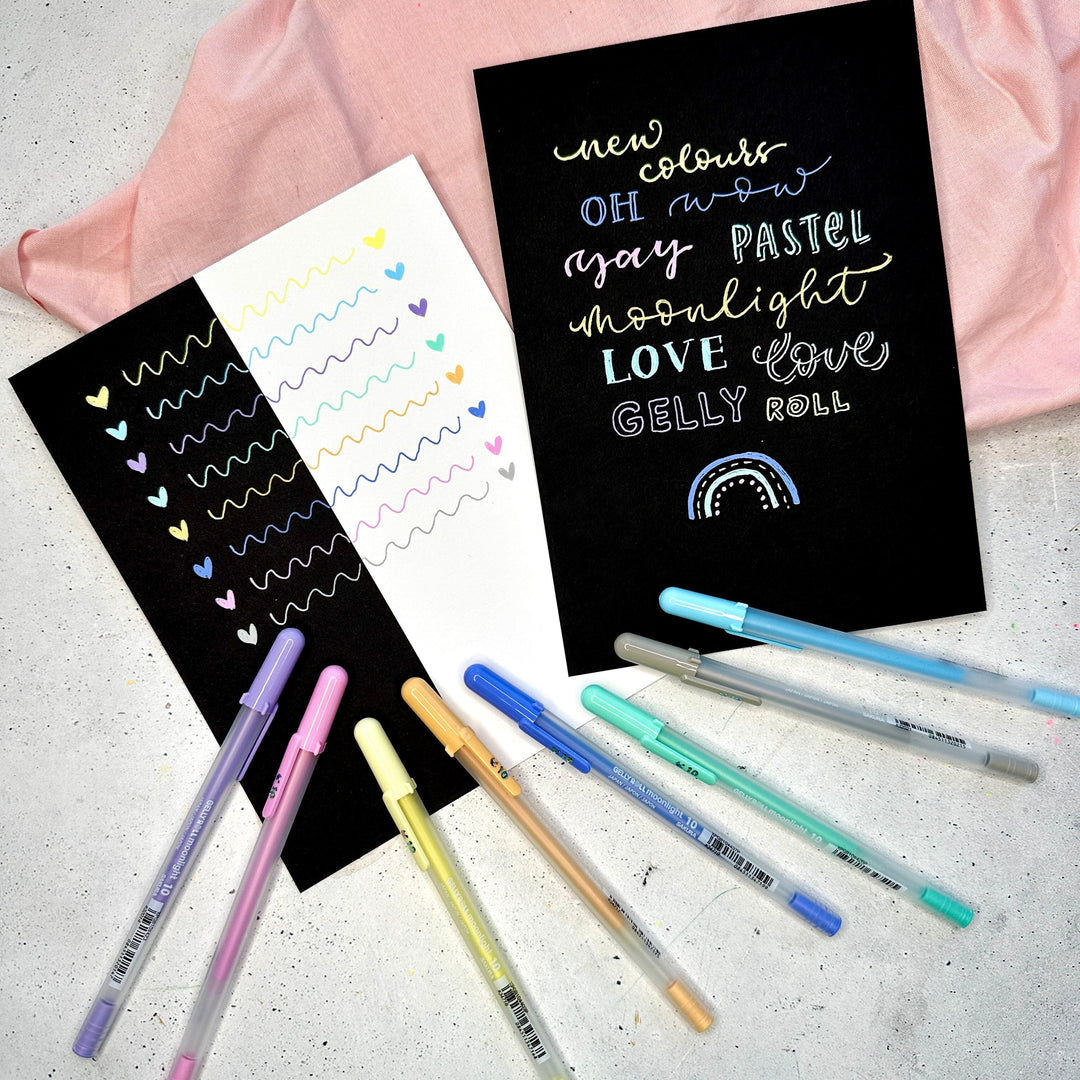 new
colours
OH wow
yay PASTEL
moonlight
LOVE love
GELLY ROLL
GELLY ROLL moonlight 10
GELLY ROLL moonlight 10
JAPAN / JAPON / JAPÓN
SAKURA
GELLY ROLL moonlight 10